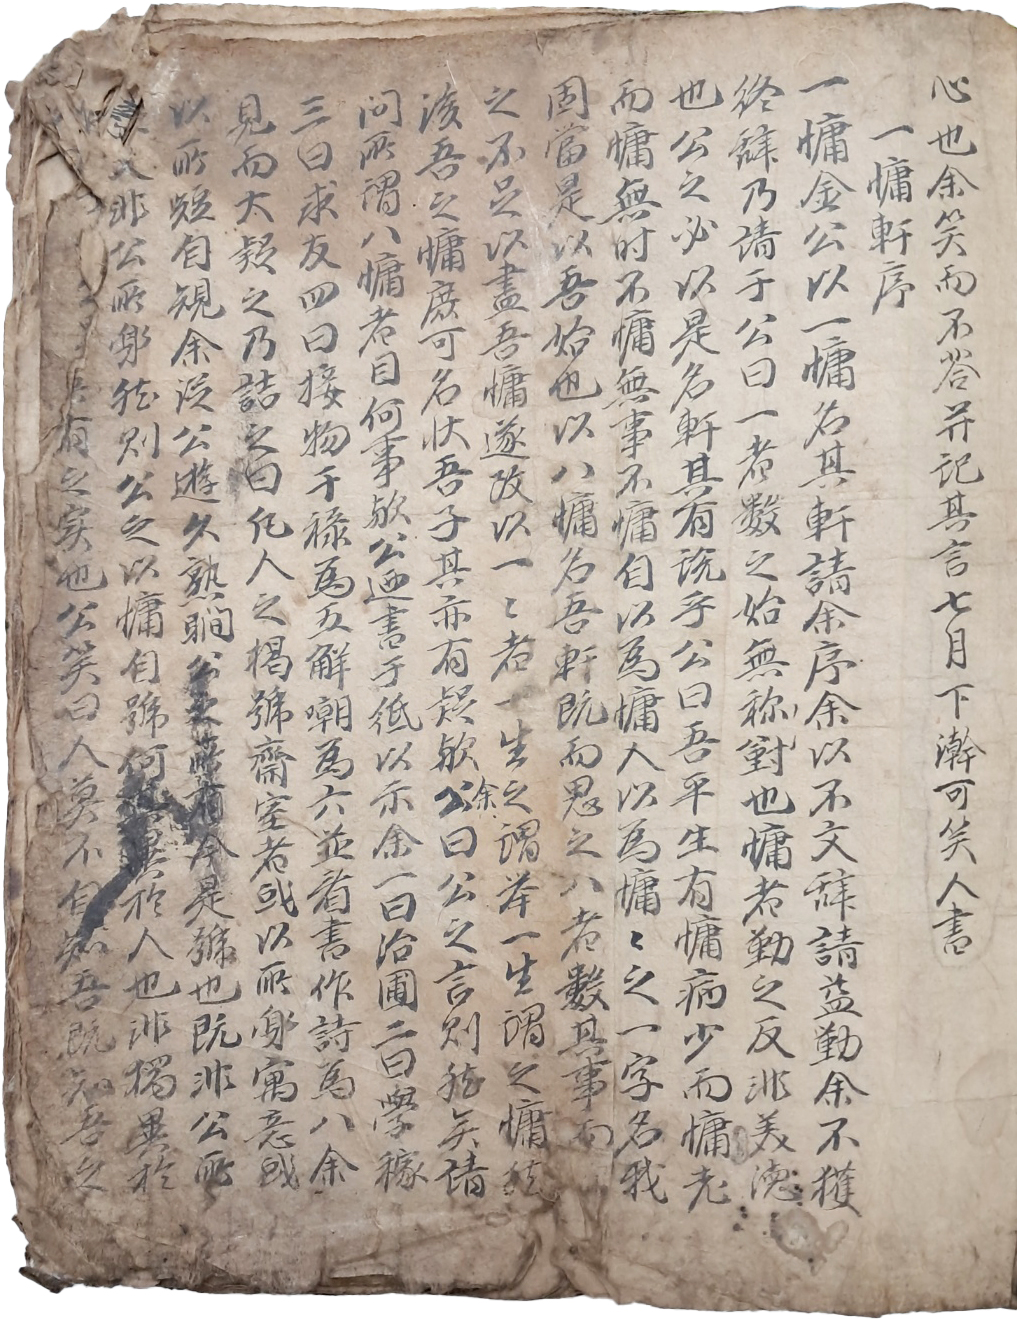 心也余笑而不答并記其言七月下澣可笑人書
一慵軒序
一慵金公以一慵名其軒請余序余以不文辭請益勤余不獲
終辭乃請于公曰一者數之始無称對也慵者勤之反非美德
也公之必以是名軒其有說乎公曰吾平生有慵病少而慵老
而慵無时不慵無事不慵自以為慵人以為慵〻之一字名我
固當是以吾始也以八慵名吾軒既而思之八者數其事而
之不足以盡吾慵遂改以一〻者一生之謂举一生謂之慵然
後吾之慵庶可名狀吾子其亦有疑欤余曰公之言則然矣請
问所謂八慵者目何事欤公迺書于纸以示余一曰治圃二曰學稼
三曰求友四曰接物干祿為五解嘲為六並看書作詩為八余
見而大疑之乃詰之曰凡人之揭號齋室者或以所身寓意或
以所短自規余従公遊久熟瞷公之是號也既非公所
非公所身然則公之以慵自號何於人也非獨異於
有之实也公笑曰人莫不自知吾既知吾之